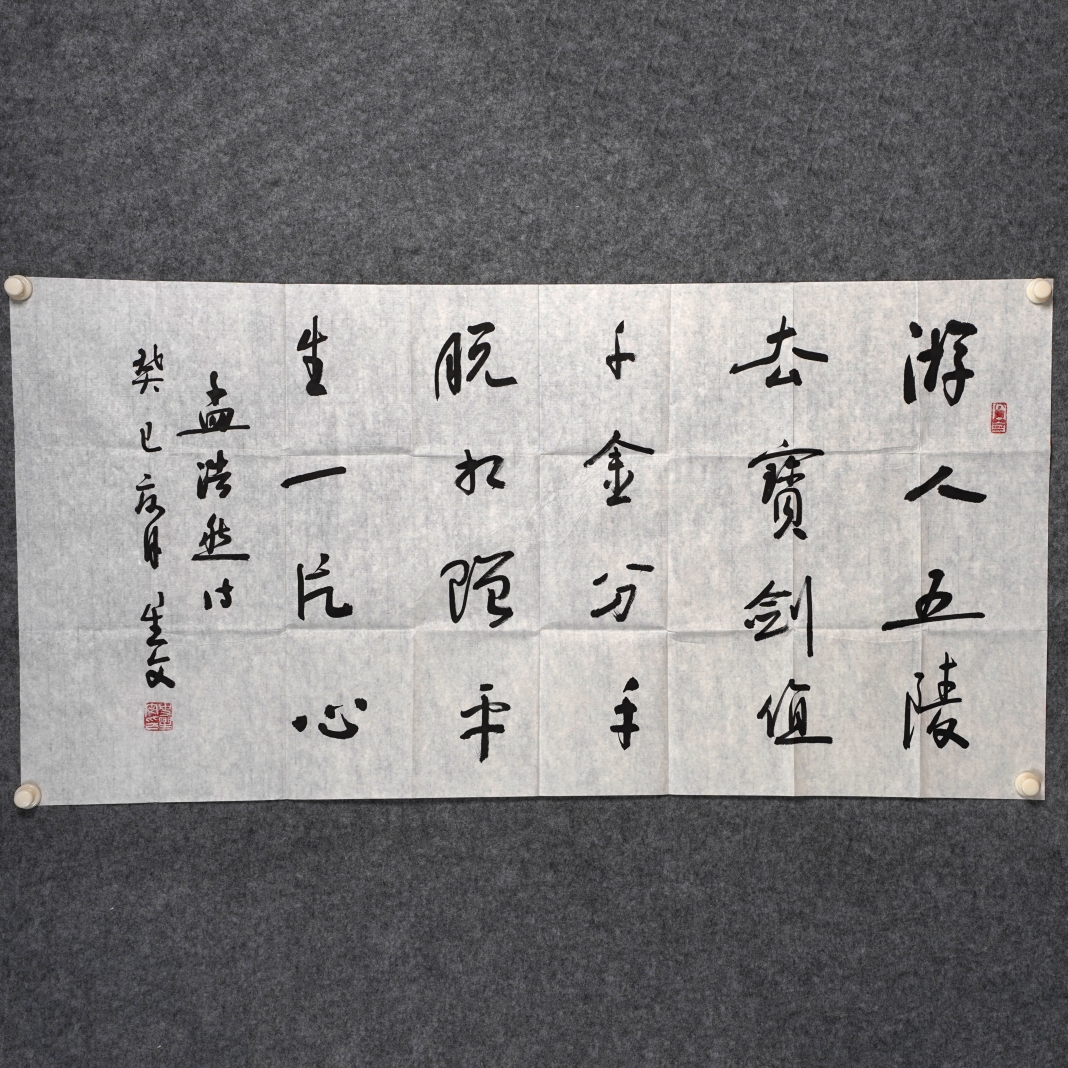 游人五陵
去寶劍值
千金分手
脱相贈平
生一片心
孟浩然诗
癸巳夜月 生文